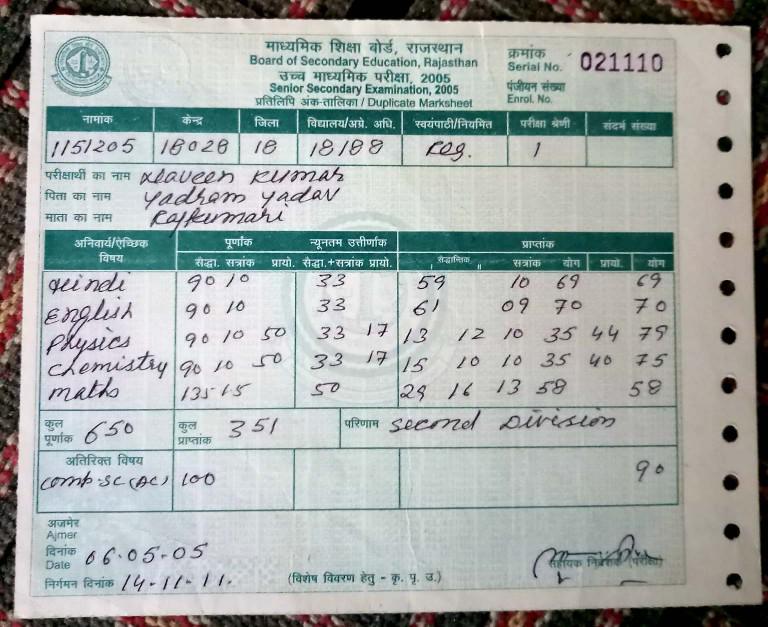 माध्यमिक शिक्षा बोर्ड, राजस्थान
Board of Secondary Education, Rajasthan
उच्च माध्यमिक परीक्षा, 2005
Senior Secondary Examination, 2005
प्रतिलिपि अंक-तालिका / Duplicate Marksheet
क्रमांक
Serial No. 021110
पंजीयन संख्या
Enrol. No.
नामांक केन्द्र जिला विद्यालय/अग्रे. अधि. स्वयंपाठी/नियमित परीक्षा श्रेणी संदर्भ संख्या
1151205 18028 18 18188 Reg. 1
परीक्षार्थी का नाम Naveen Kumar
पिता का नाम Yadram Yadav
माता का नाम Rajkumari
अनिवार्य/ऐच्छिक विषय पूर्णांक न्यूनतम उत्तीर्णांक प्राप्तांक
सैद्धा. सत्रांक प्रायो. सैद्धा.+सत्रांक प्रायो. सैद्धान्तिक सत्रांक योग प्रायो. योग
Hindi 90 10 33 59 10 69 69
English 90 10 33 61 09 70 70
Physics 90 10 50 33 17 13 12 10 35 44 79
Chemistry 90 10 50 33 17 15 10 10 35 40 75
Maths 135 15 50 29 16 13 58 58
कुल पूर्णांक 650 कुल प्राप्तांक 351 परिणाम Second Division
अतिरिक्त विषय
Comp.SC(AC) 100 90
अजमेर
Ajmer
दिनांक
Date 06.05.05
निर्गमन दिनांक 14-11-11. (विशेष विवरण हेतु - कृ. पृ. उ.) सहायक निदेशक (परीक्षा)